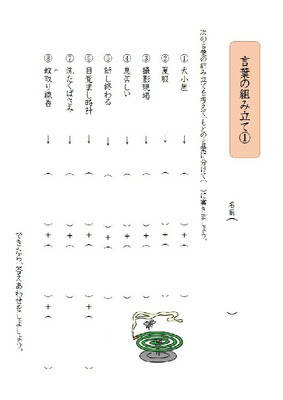 言葉の組み立て①
名前（　　　）
次の言葉の組み立てを考えて、もとの言葉に分けて（　）に書きましょう。
①犬小屋→（　）＋（　）
②夏服→（　）＋（　）
③撮影現場→（　）＋（　）
④息苦しい→（　）＋（　）
⑤話し終わる→（　）＋（　）
⑥目覚まし時計→（　）＋（　）＋（　）
⑦洗たくばさみ→（　）＋（　）
⑧蚊取り線香→（　）＋（　）＋（　）
できたら、答えあわせをしましょう。